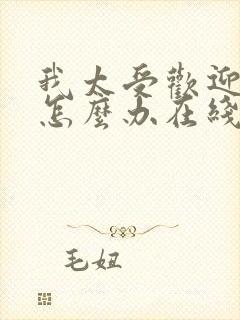 我太受歡迎
怎麼办在綫
毛妞